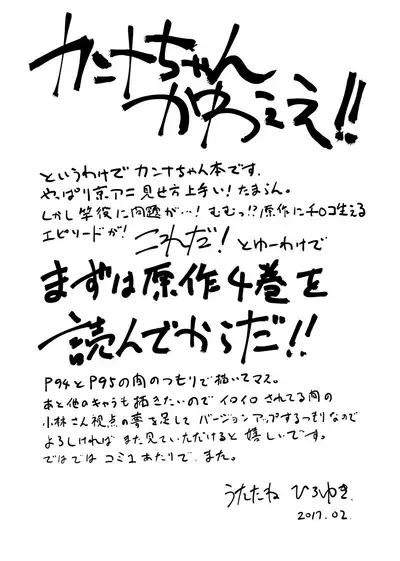 カンナちゃん
かわええ!!
というわけで カンナちゃん本です.
やっぱり京アニ 見せ方上手い! たまらん。
しかし竿役に問題が…! むむっ!? 原作にチ○コ生える
エピソードが! これだ! とゆーわけで
まずは原作4巻を
読んでからだ!!
P94とP95の間のつもりで描いてマス。
あと他のキャラも描きたいので イロイロ されてる間の
小林さん視点の夢を足して バージョンアップするつもりなので
よろしければ また見ていただけると 嬉しいです。
ではでは コミ1あたりで、また。
うたたね ひろゆき.
2017.02.